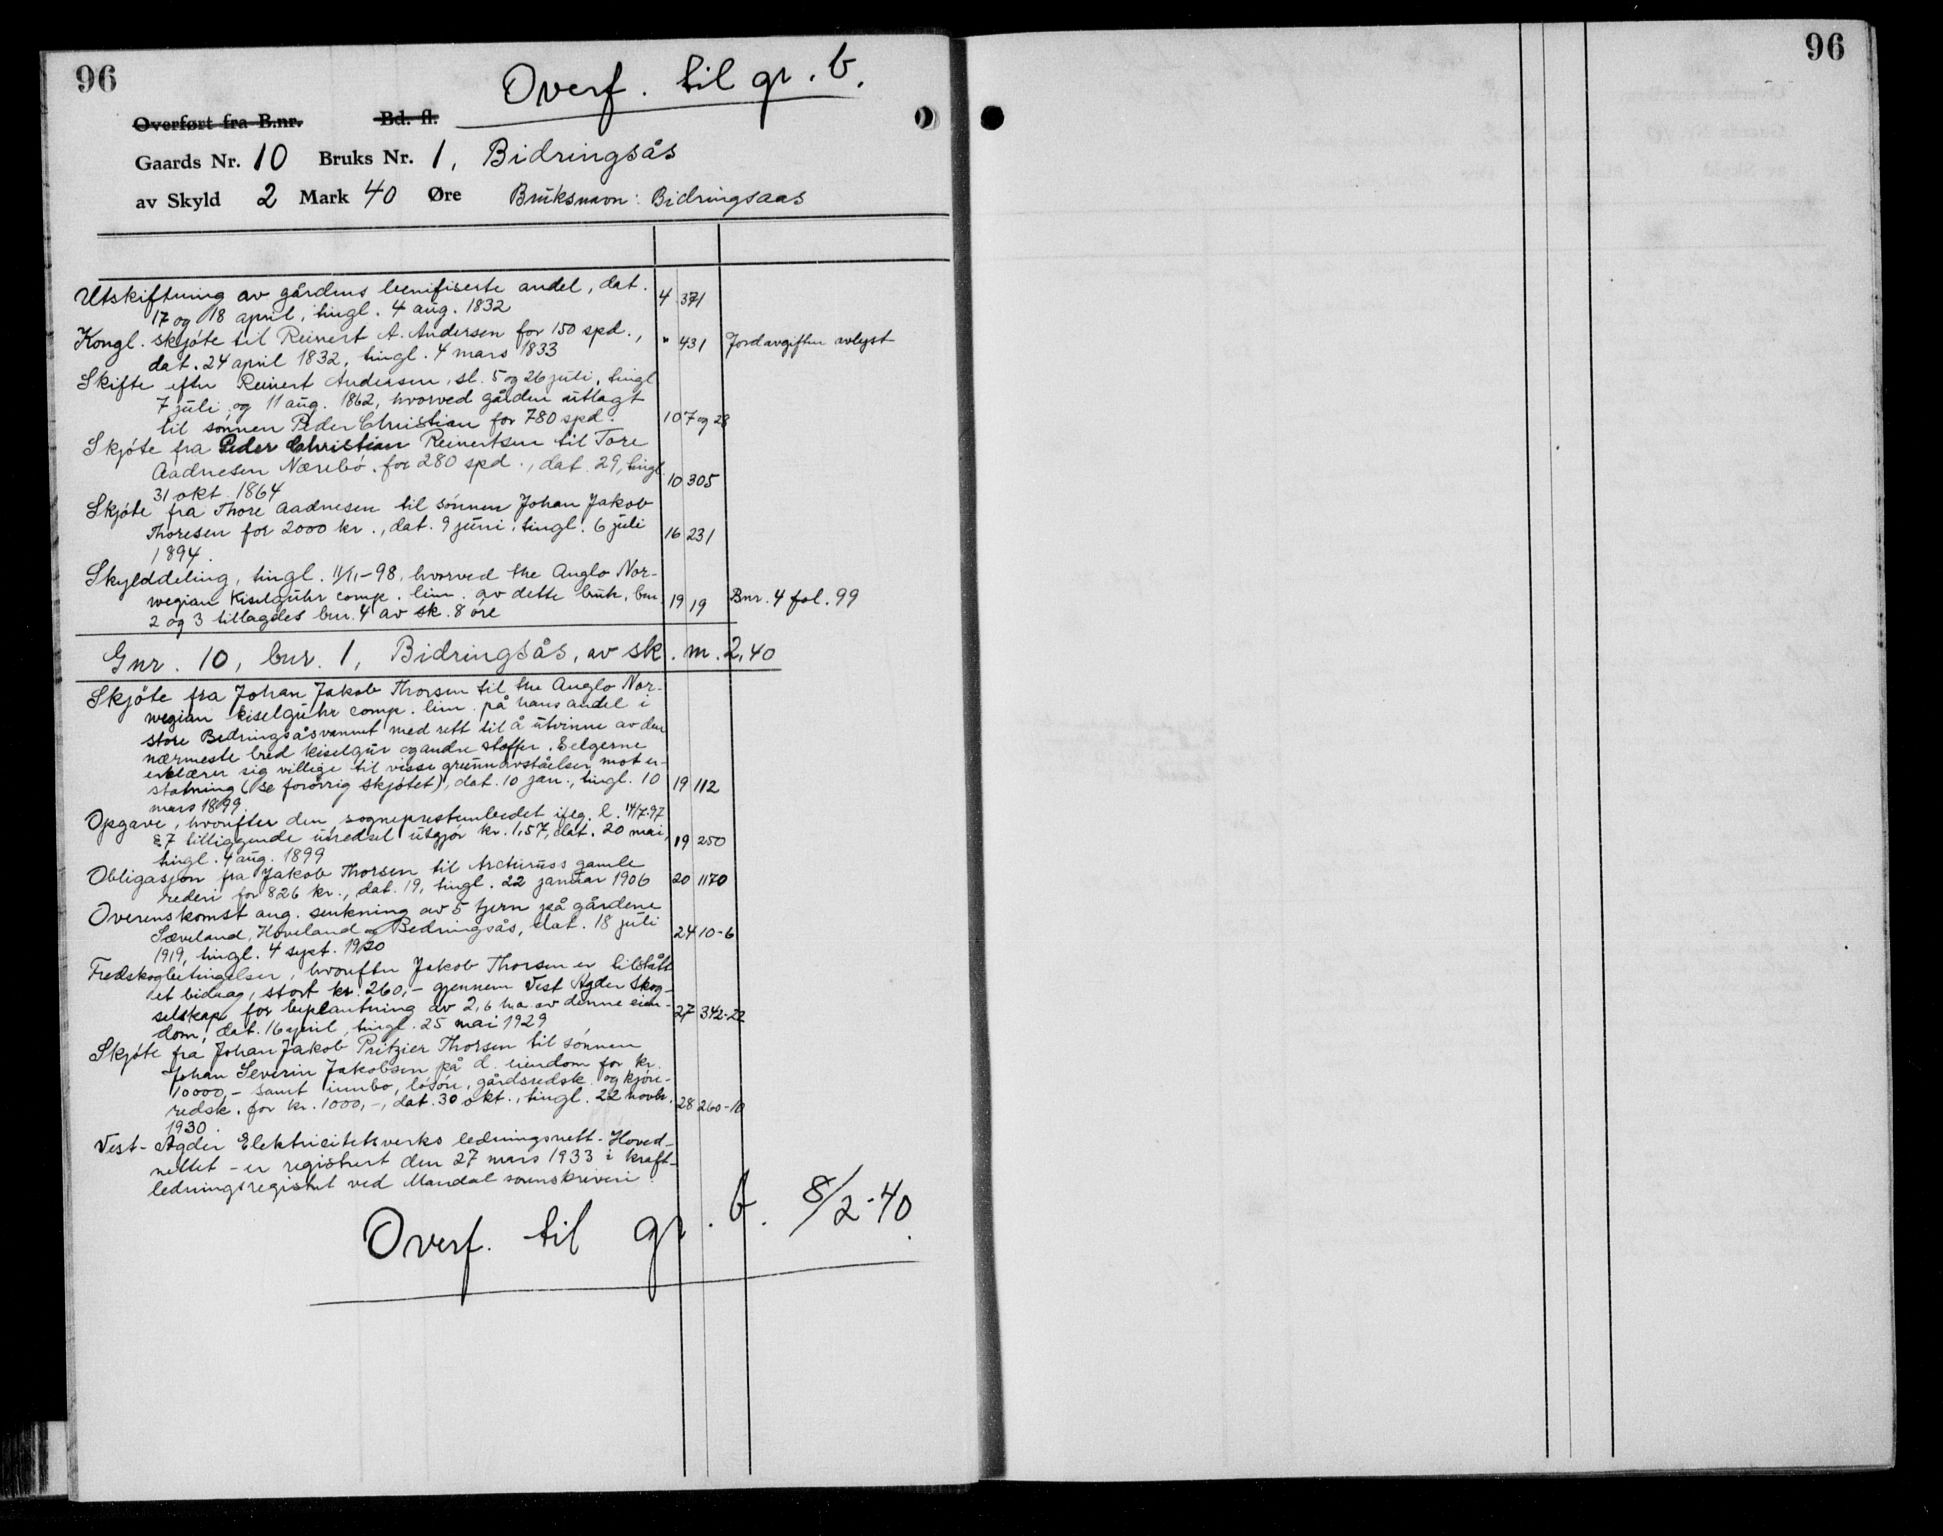 96
Overf. til gr. b.
Overført fra B.nr. Bd. fl.
Gaards Nr. 10 Bruks Nr. 1, Bidringsås
av Skyld 2 Mark 40 Øre Bruksnavn: Bidringsaas
Utskiftning av gårdens benifiserte andel, dat.
17 og 18 april, tingl. 4 aug. 1832 4 371
Kongl. skjøte til Reinert A. Andersen for 150 spd.,
dat. 24 april 1832, tingl. 4 mars 1833 " 431 Jordavgiften avlyst
Skifte efter Reinert Andersen, sl. 5 og 26 juli, tingl
7 juli og 11 aug. 1862, hvorved gården utlagt
til sønnen Peder Christian for 780 spd. 10 7 og 28
Skjøte fra Peder Christian Reinertsen til Tore
Aadnesen Nærebø, for 280 spd., dat. 29, tingl
31 okt. 1864 10 305
Skjøte fra Thore Aadnesen til sønnen Johan Jakob
Thoresen for 2000 kr., dat. 9 juni, tingl. 6 juli
1894. 16 231
Skylddeling, tingl. 11/11-98, hvorved the Anglo Nor-
wegian Kiselguhr comp. lim. av dette bruk, bnr.
2 og 3 tillagdes bnr. 4 av sk. 8 øre 19 19 Bnr. 4 fol. 99
Gnr. 10, bnr. 1, Bidringsås, av sk. m. 2,40
Skjøte fra Johan Jakob Thorsen til the Anglo Nor-
wegian kiselguhr comp. lim. på hans andel i
store Bedringsåsvannet med rett til å utvinne av den
nærmeste bred kiselgur og andre stoffer. Selgerne
erklærer sig villige til visse grunnavståelser mot er-
statning (se forøvrig skjøtet), dat. 10 jan., tingl. 10
mars 1899. 19 112
Opgave, hvorefter den sogneprestembedet iflg. l. 14/7-97
§ 7 tilliggende utredsel utgjør kr. 1,57, dat. 20 mai,
tingl. 4 aug. 1899 19 250
Obligasjon fra Jakob Thorsen til Arcturuss gamle
rederi for 826 kr., dat. 19, tingl. 22 januar 1906 20 1170
Overenskomst ang. senkning av 5 tjern på gårdene
Sæveland, Høveland og Bedringsås, dat. 18 juli
1919, tingl. 4 sept. 1920 24 10-6
Fredskogbetingelser, hvorefter Jakob Thorsen er tilstått
et bidrag, stort kr. 260,- gjennem Vest Agder Skog-
selskap for beplantning av 2,6 ha. av denne eien-
dom, dat. 16 april, tingl. 25 mai 1929 27 342-22
Skjøte fra Johan Jakob Pritzier Thorsen til sønnen
Johan Severin Jakobsen på d. eiendom for kr.
10000,- samt innbo, løsøre, gårdsredsk. og kjøre-
redsk. for kr. 1000,-, dat. 30 okt., tingl. 22 novbr.
1930. 28 260-10
Vest-Agder Elektricitetsverks ledningsnett - Hoved-
nettet - er registrert den 27 mars 1933 i kraft-
ledningsregistret ved Mandal sorenskriveri.
Overf. til gr. b. 8/2-40.
96